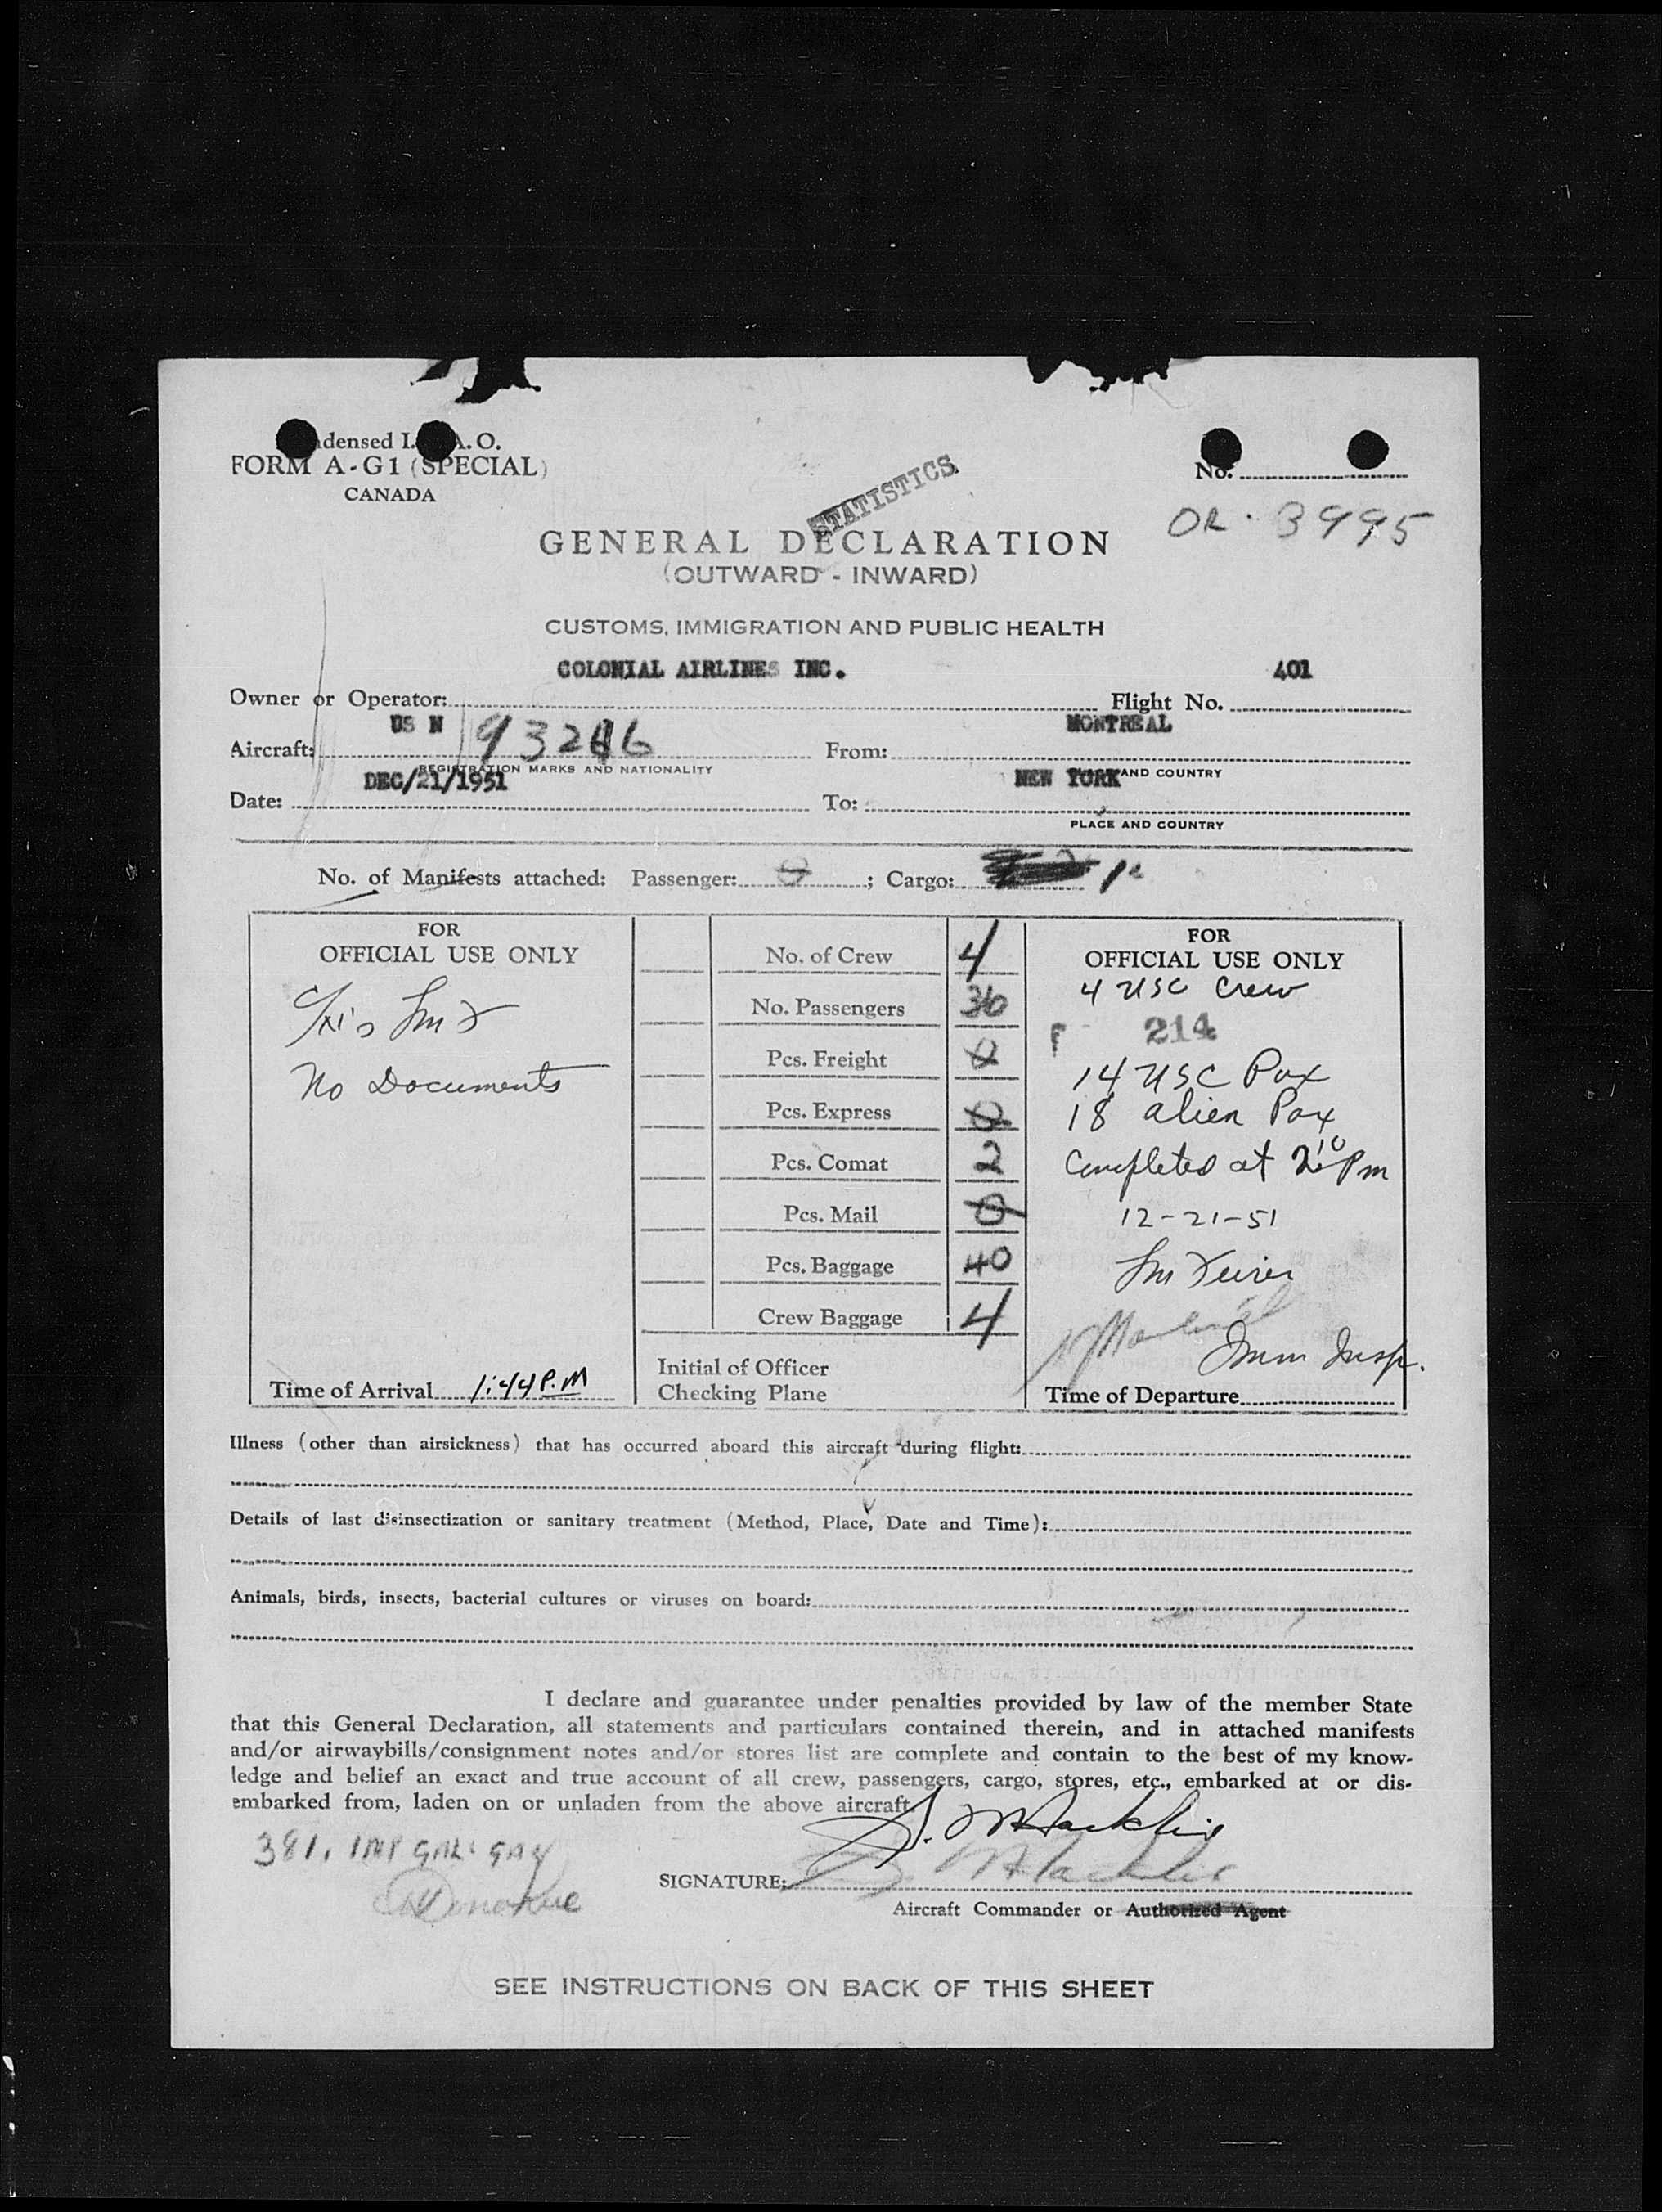 densed I. A.O.
FORM A-G1 (SPECIAL)
CANADA
No.
STATISTICS
OR. 3995
GENERAL DECLARATION
(OUTWARD - INWARD)
CUSTOMS, IMMIGRATION AND PUBLIC HEALTH
COLONIAL AIRLINES INC. 401
Owner or Operator: Flight No.
US N MONTREAL
Aircraft: From:
REGISTRATION MARKS AND NATIONALITY AND COUNTRY
DEC/21/1951 NEW YORK
Date: To:
PLACE AND COUNTRY
No. of Manifests attached: Passenger: 0 ; Cargo:
FOR
OFFICIAL USE ONLY
No Documents
Time of Arrival 1:44 P.M
No. of Crew 4
No. Passengers 36
Pcs. Freight 0
Pcs. Express 0
Pcs. Comat 2
Pcs. Mail 0
Pcs. Baggage 40
Crew Baggage 4
Initial of Officer
Checking Plane
FOR
OFFICIAL USE ONLY
4 USC Crew
214
14 USC Pax
18 alien Pax
Completed at 2:10 Pm
12-21-51
Imm Insp.
Time of Departure
Illness (other than airsickness) that has occurred aboard this aircraft during flight:
Details of last disinsectization or sanitary treatment (Method, Place, Date and Time):
Animals, birds, insects, bacterial cultures or viruses on board:
I declare and guarantee under penalties provided by law of the member State
that this General Declaration, all statements and particulars contained therein, and in attached manifests
and/or airwaybills/consignment notes and/or stores list are complete and contain to the best of my know-
ledge and belief an exact and true account of all crew, passengers, cargo, stores, etc., embarked at or dis-
embarked from, laden on or unladen from the above aircraft.
SIGNATURE:
Aircraft Commander or Authorized Agent
SEE INSTRUCTIONS ON BACK OF THIS SHEET